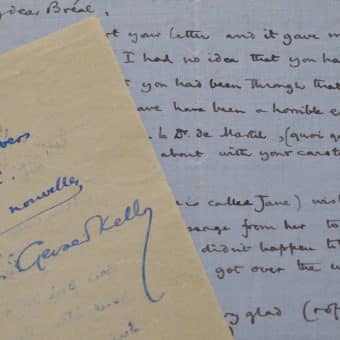 dear Bréal,
your letter and it gave m
I had no idea that you ha
you had been through that
have been a horrible e
Dr. de Martel, (quoi qu
about with your const
is called Jane) wis
ssage from her to
didn't happen to
got over the w
glad (ro
vers
nouvelles
Gerald Kelly